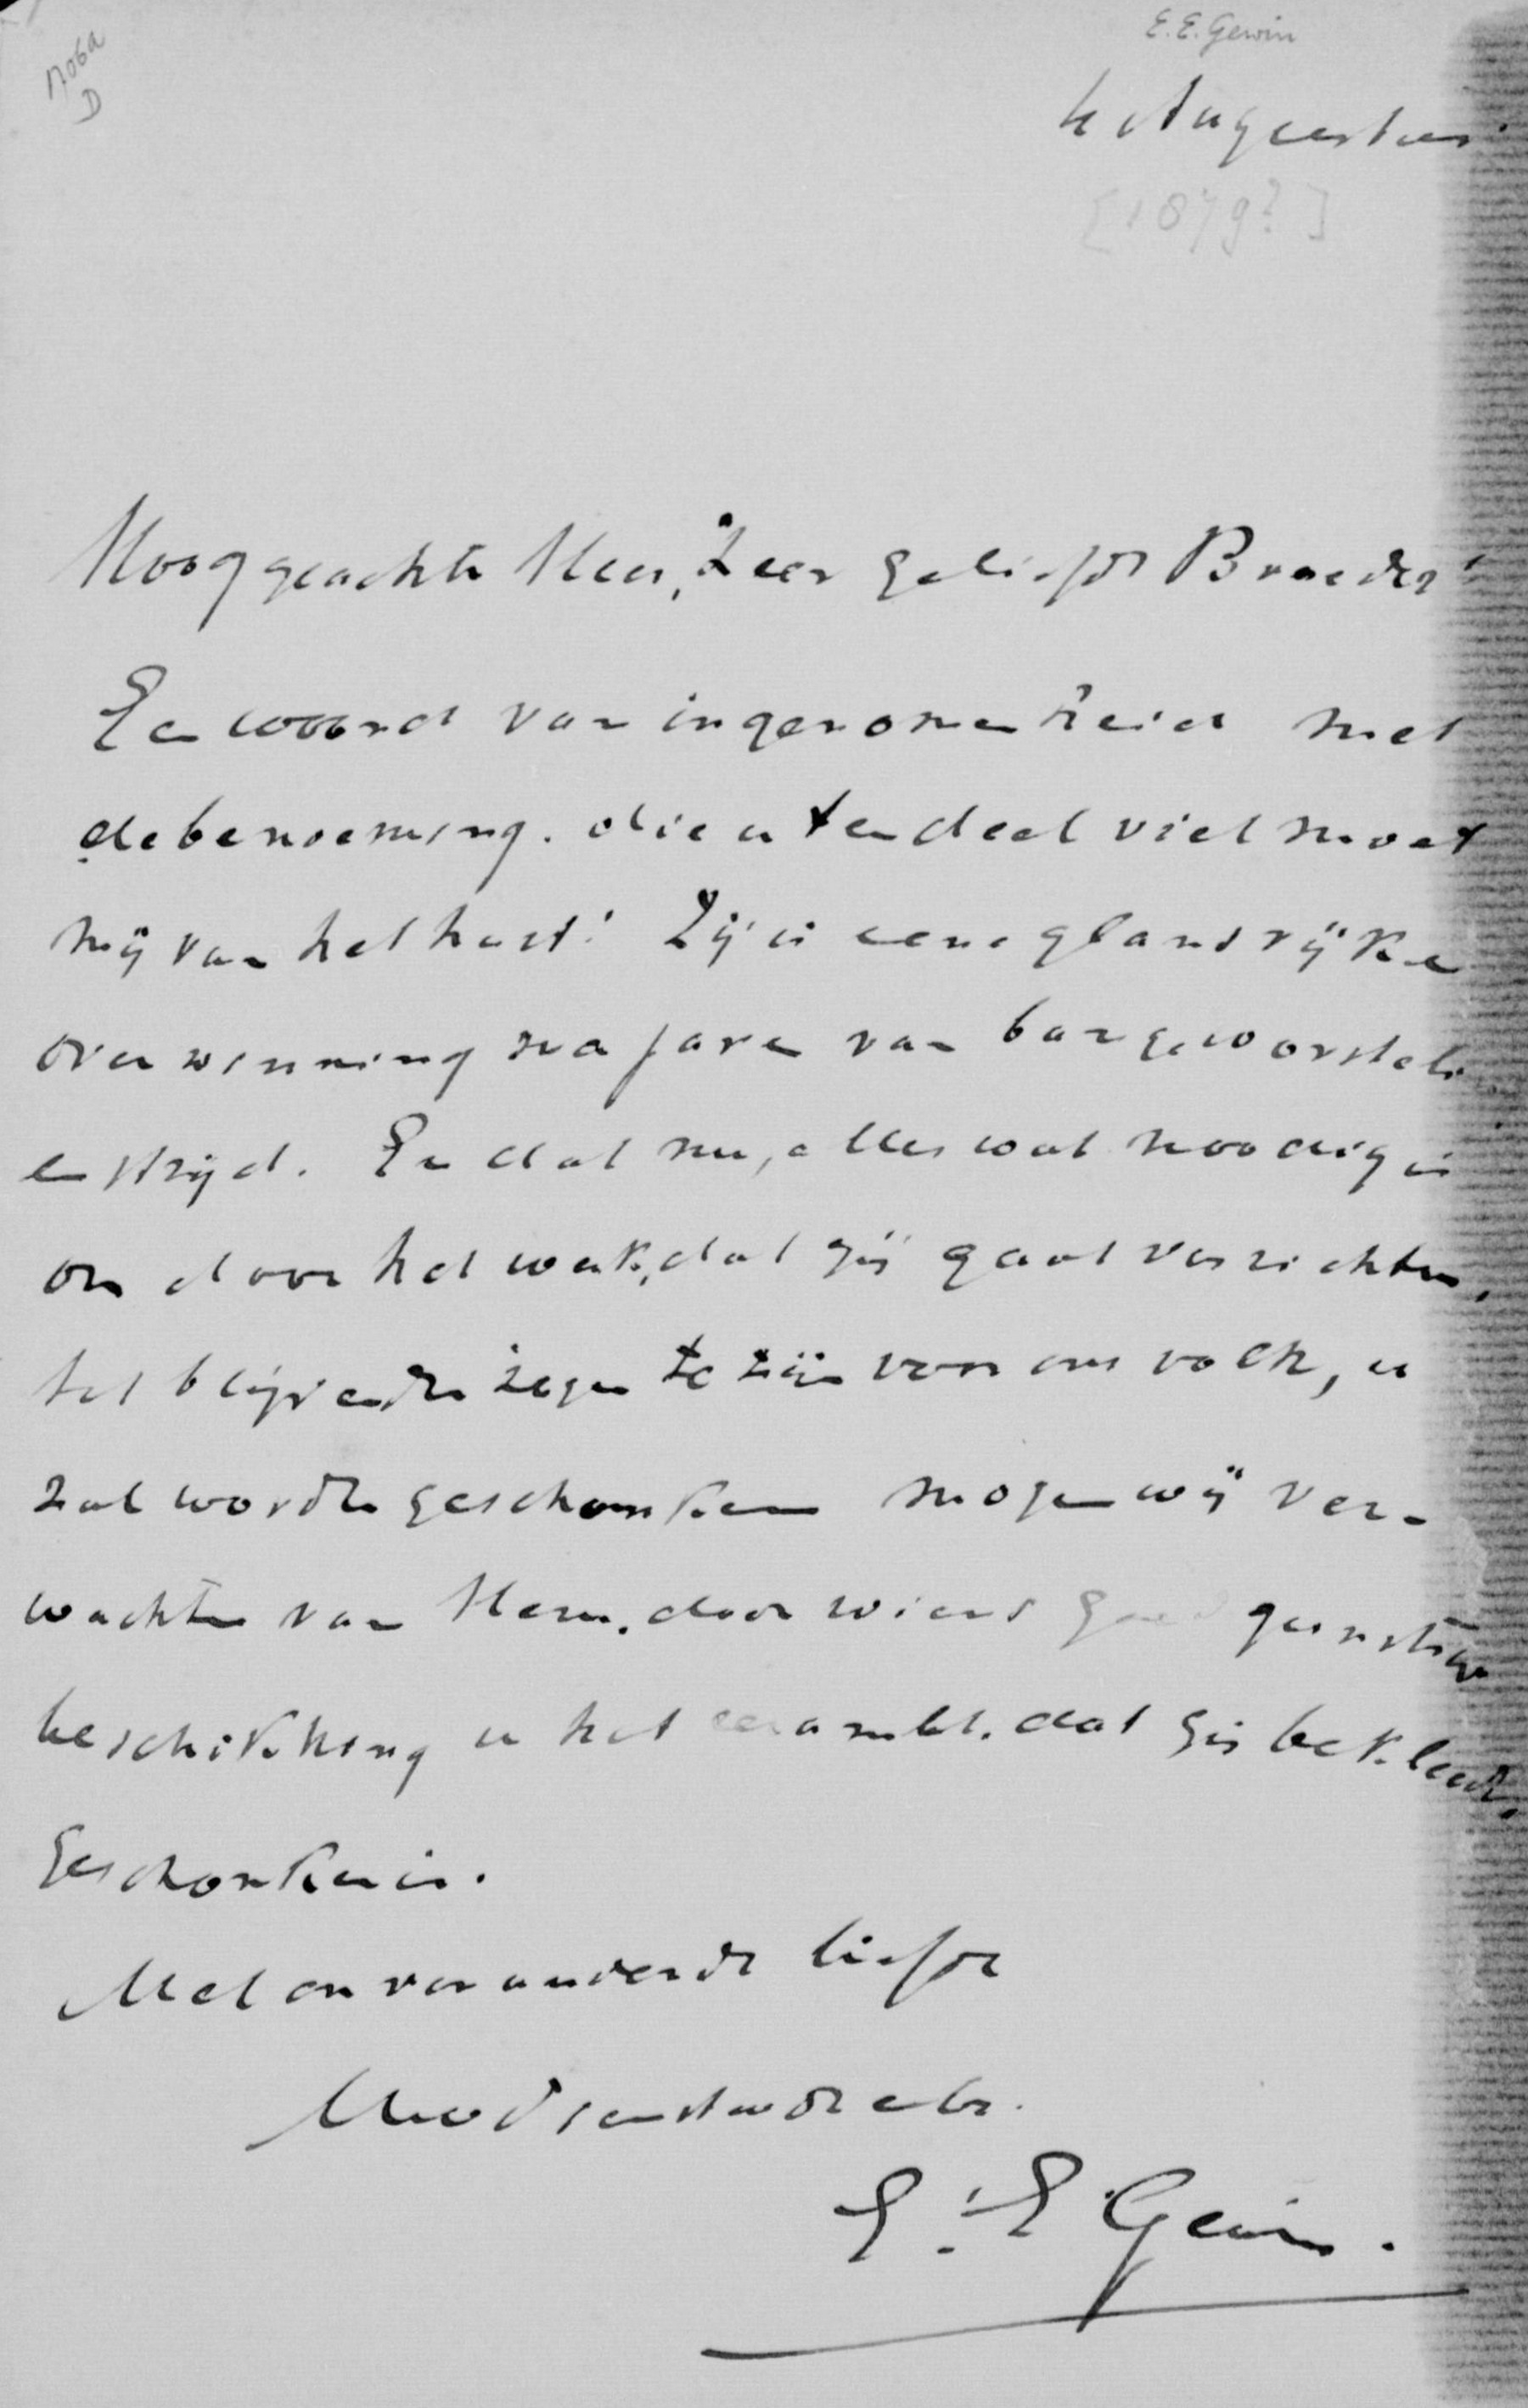 E.E. Gewin
D
4 Augustus
[1879?]
Hooggeachte Heer, Zeer geliefde Broeder!
Een woord van ingenomenheid met
de benoeming. die u ten deel viel moet
mij van het hart! Zij is eene glansrijke
overwinning na jaren van bang geworstel
en strijd. En dat nu, alles wat noodig is
om door het werk, dat gij gaat verrichten,
tot blijvenden zegen te zijn voor ons volk, u
zal worden geschonken mogen wij ver-
wachten van Hem. door wiens goed gunstige
beschikking u het ambt. dat gij bekleedt,
geschonken is.
Met onveranderde liefde
E. E Gewin.